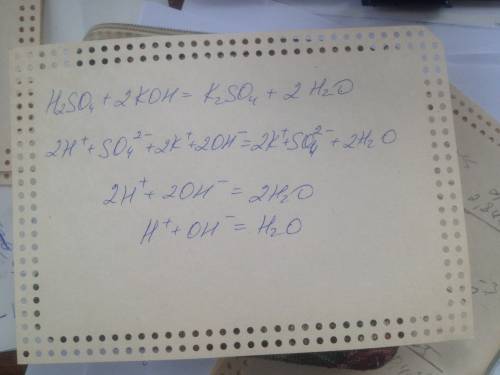 H₂SO₄ + 2KOH = K₂SO₄ + 2H₂O
2H⁺ + SO₄²⁻ + 2K⁺ + 2OH⁻ = 2K⁺ + SO₄²⁻ + 2H₂O
2H⁺ + 2OH⁻ = 2H₂O
H⁺ + OH⁻ = H₂O